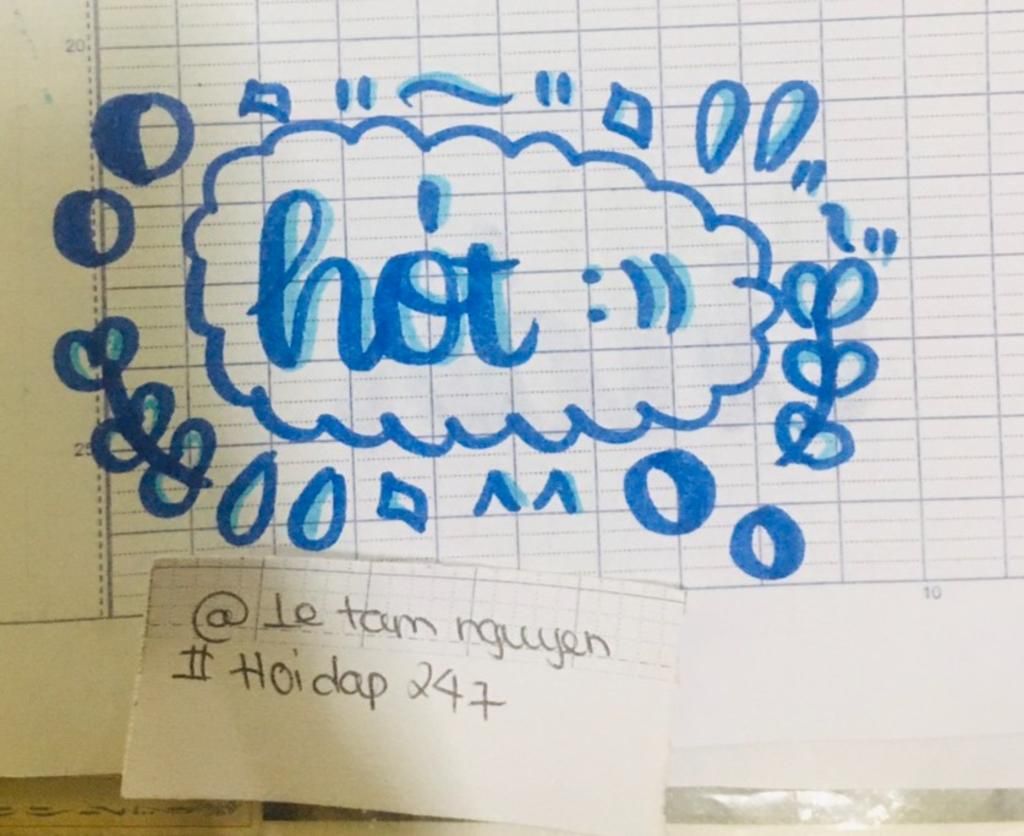 20
hót :))
25
10
@ Le tam nguyen
# Hoidap 247